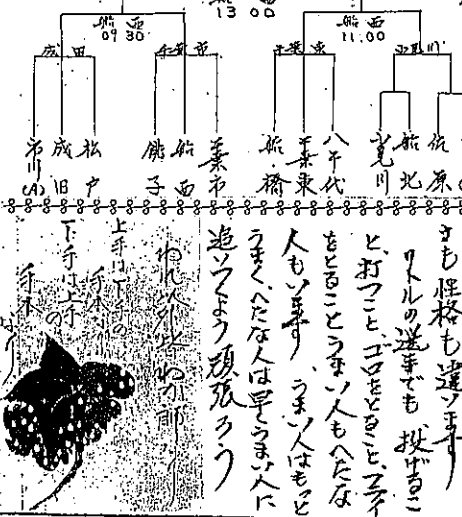 13 00
船西
09 30
船西
11.00
成田
千葉市
千葉東
花見川
市川(A)
成田
松戸
銚子
船西
千葉市
船橋
千葉東
八千代
花見川
船北
佐原
さも性格も違います
リトルの選手でも、投げるこ
と、打つこと、ゴロをとること、フライ
をとることうまい人もへたな
人もいます。うまい人はもっと
うまく、へたな人は早くうまい人に
追いつくよう頑張ろう
われ以外皆わが師なり
上手は下手の
手本なり
下手は上手
の
手本
なり